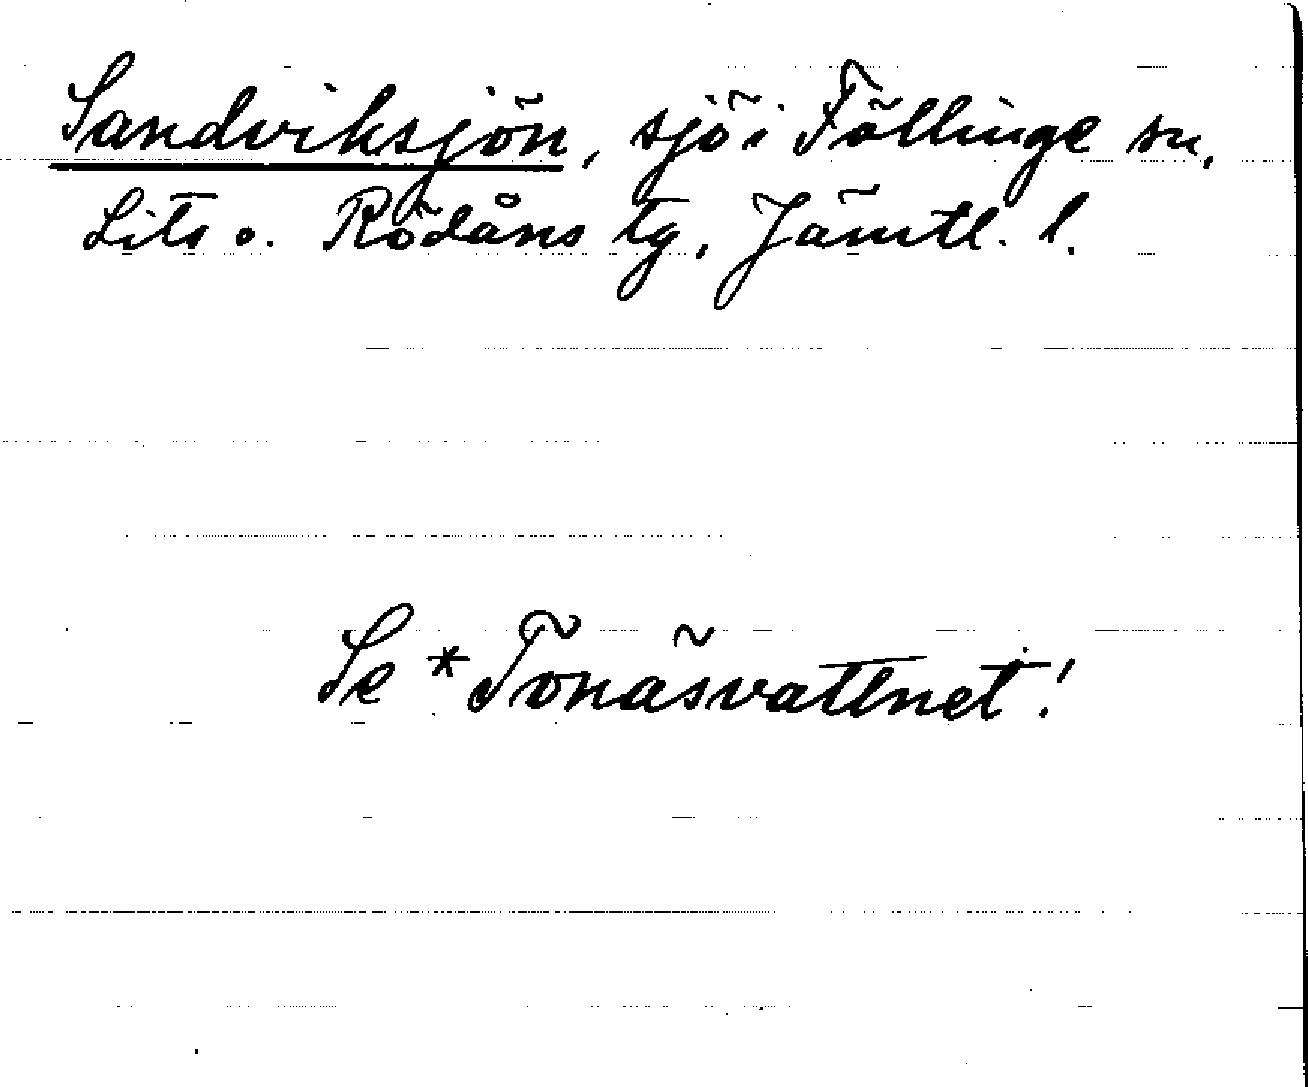 Sandviksjön, sjö i Föllinge sn,
Lits o. Rödåns tg, Jämtl. l.
Se *Tonäsvattnet!